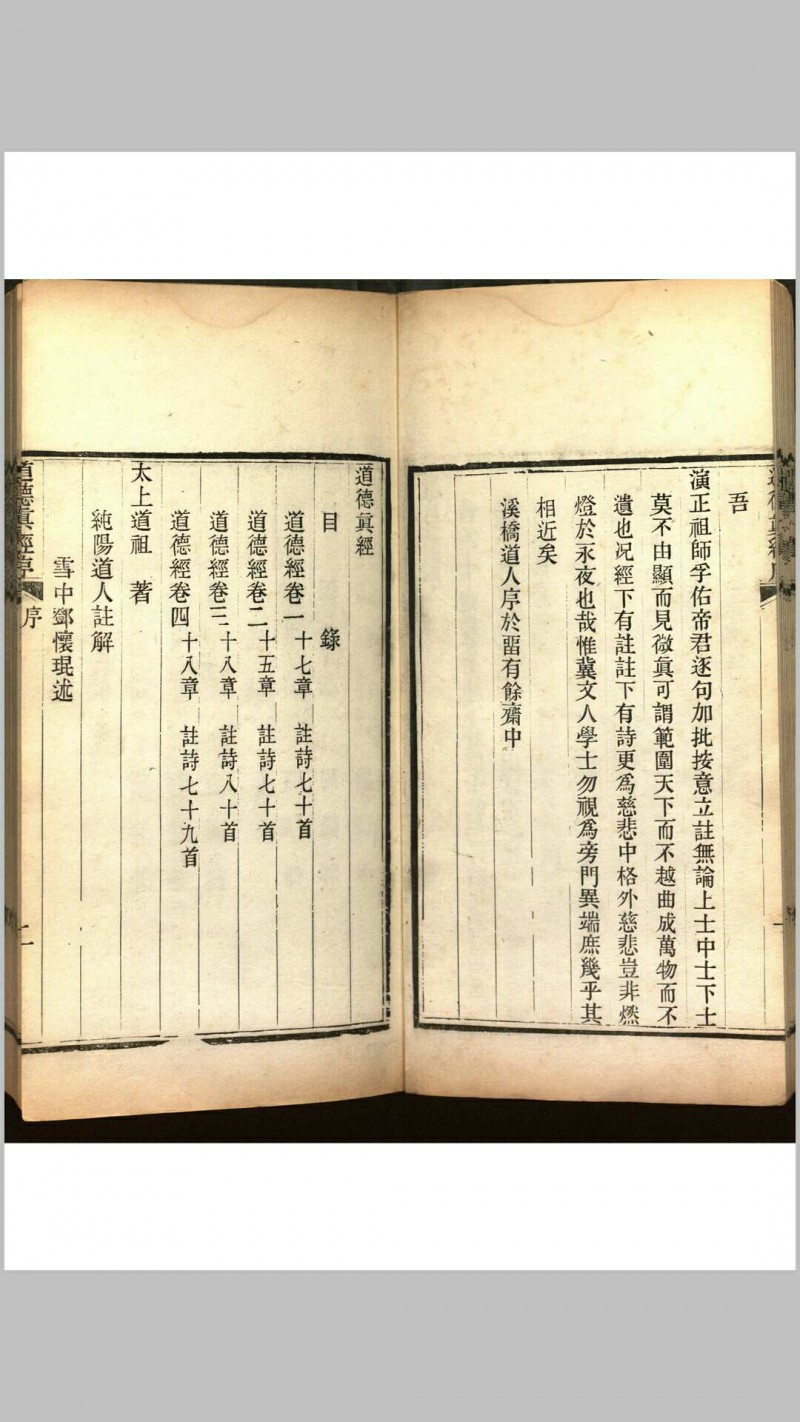 吾
演正祖師孚佑帝君逐句加批按意立註無論上士中士下士
莫不由顯而見微眞可謂範圍天下而不越曲成萬物而不
遺也况經下有註註下有詩更爲慈悲中格外慈悲豈非燃
燈於永夜也哉惟冀文人學士勿視爲旁門異端庶幾乎其
相近矣
溪橋道人序於畱有餘齋中
道德眞經
目 錄
道德經卷一 十七章 註詩七十首
道德經卷二 十五章 註詩七十首
道德經卷三 十八章 註詩八十首
道德經卷四 十八章 註詩七十九首
太上道祖 著
純陽道人註解
雪中鄧懷琨述
道德眞經序 序 二